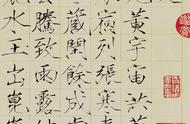 黃宇宙洪荒
宿列張寒來
藏閏餘成歲
雲騰致雨露
水玉出崑